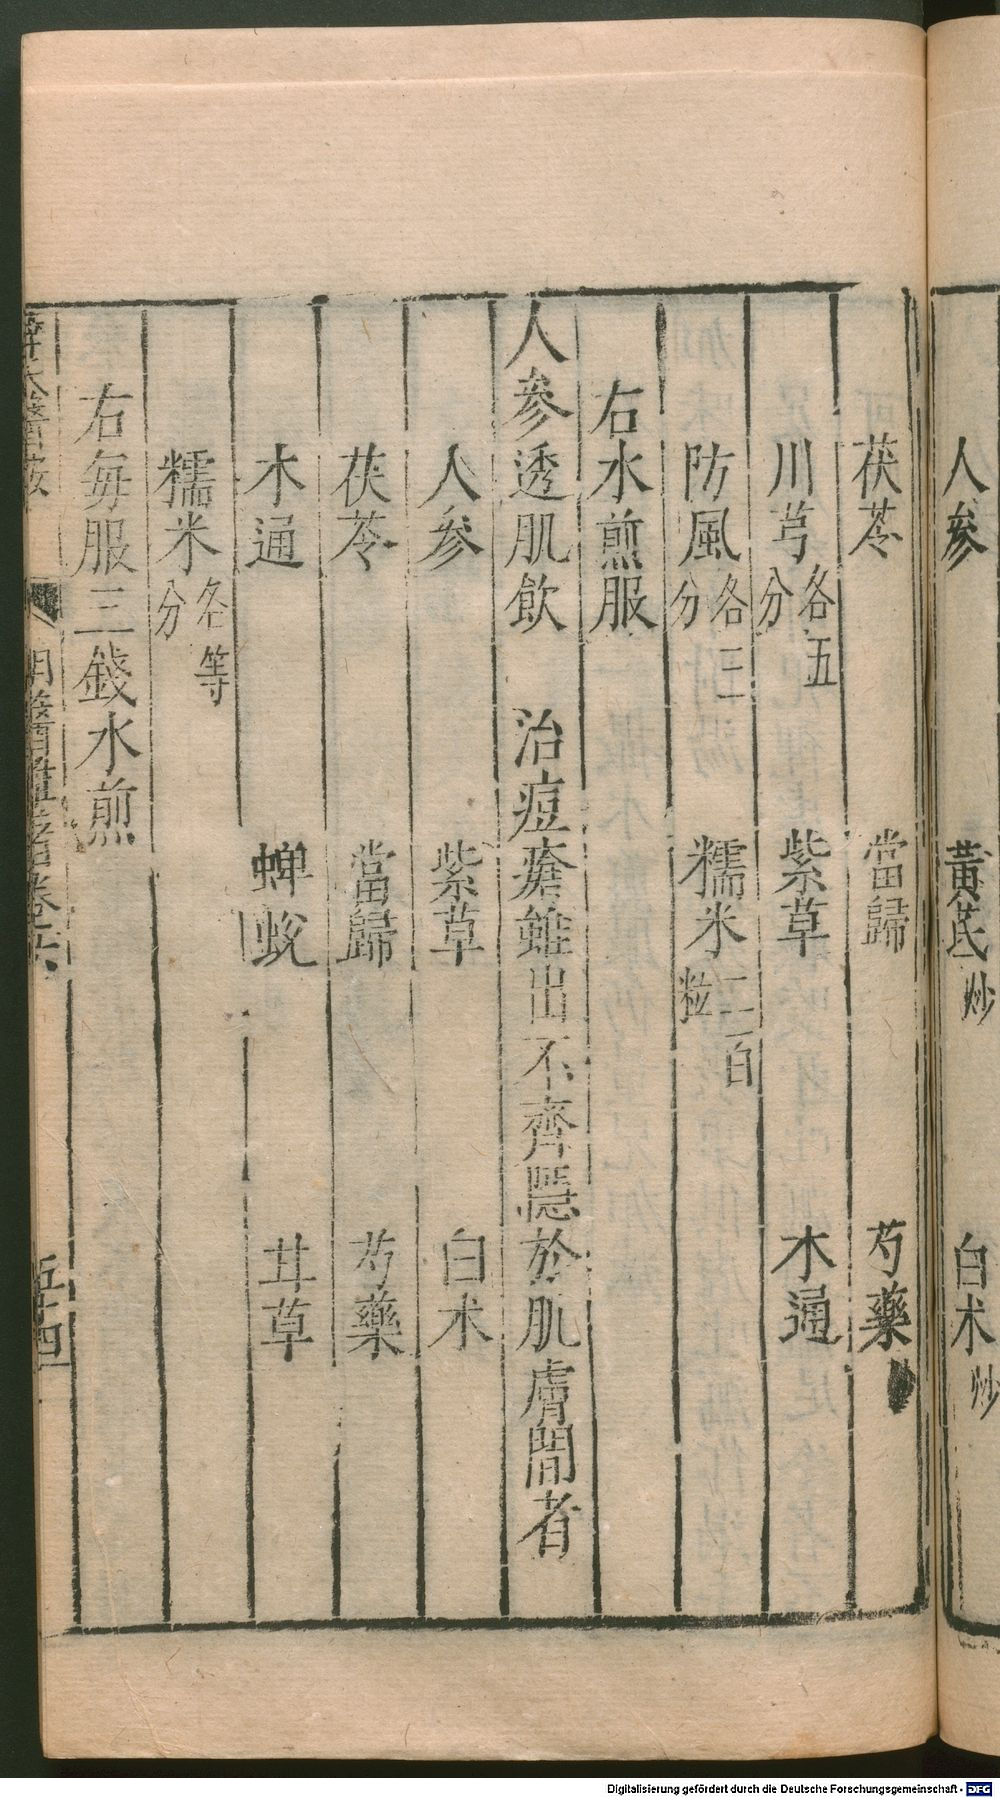 人參　黃芪炒　白朮炒
茯苓　當歸　芍藥
川芎各五分　紫草　木通
防風各三分　糯米二百粒
右水煎服
人參透肌飲　治痘瘡雖出不齊隱於肌膚間者
人參　紫草　白朮
茯苓　當歸　芍藥
木通　蟬蛻　甘草
糯米各等分
右每服三錢水煎
Digitalisierung gefördert durch die Deutsche Forschungsgemeinschaft - DFG